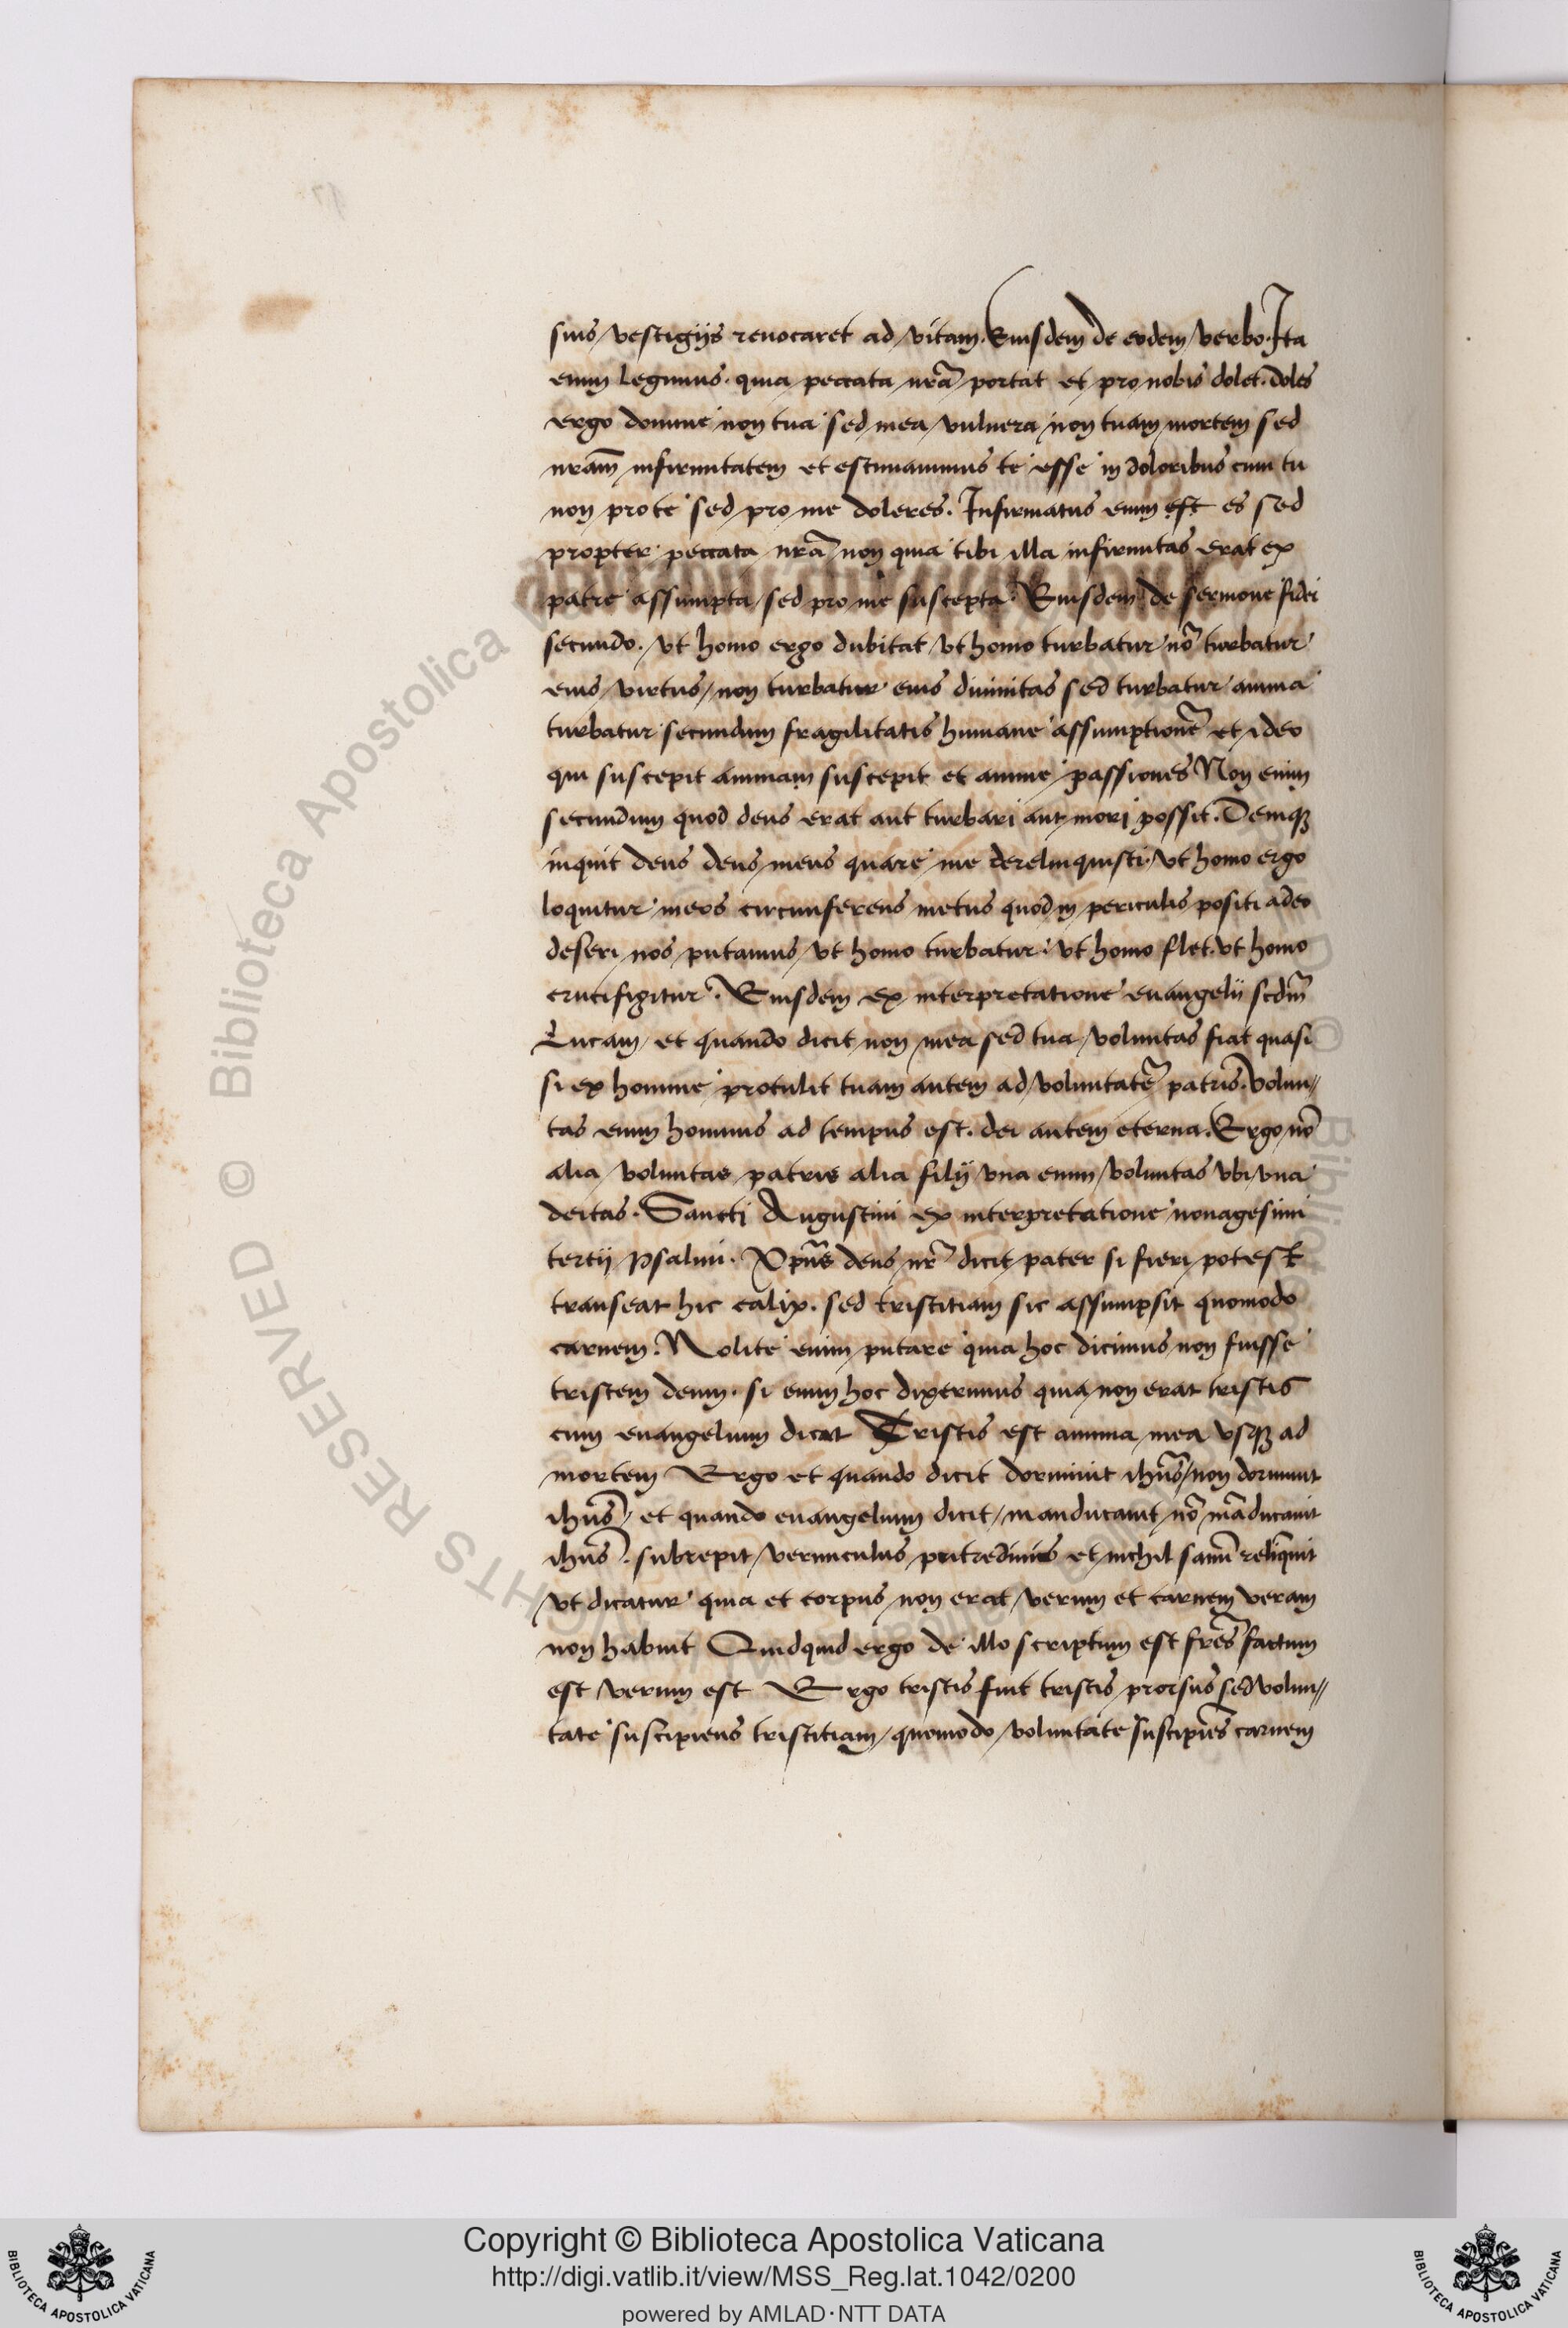 suis vestigijs reuocaret ad vitam. Eiusdem de eodem verbo. Ita
enim legimus. quia peccata nrā portat et pro nobis dolet. doles
ergo domine non tua sed mea vulnera non tuam mortem sed
nram̄ infirmitatem et estimauimus te esse in doloribus cum tu
non pro te sed pro me doleres. Infirmatus enim est es sed
propter peccata nrā non quia tibi illa infirmitas erat ex
patre assumpta sed pro me suscepta. Eiusdem de sermone fidei
secundo. vt homo ergo dubitat vt homo turbatur nō turbatur
eius virtus non turbatur eius diuinitas sed turbatur anima
turbatur secundum fragilitatis humane assumptionē et ideo
qui suscepit animam suscepit et anime passiones Non enim
secundum quod deus erat aut turbari aut mori possit. Deniqꝫ
inquit deus deus meus quare me derelinquisti. vt homo ergo
loquitur meos circunferens metus quod in periculis positi adeo
deseri nos putamus vt homo turbatur. vt homo flet. vt homo
crucifigitur. Eiusdem ex interpretatione euangelij scdm̄
Lucam et quando dicit non mea sed tua voluntas fiat quasi
si ex homine protulit tuam autem ad voluntatē patris. volun//
tas enim hominis ad tempus est. dei autem eterna. Ergo nō
alia voluntas patris alia filij vna enim voluntas vbi vna
deitas. Sancti Augustini ex interpretatione nonagesimi
tertij Psalmi. Dn̄s deus nr̄ dicit pater si fieri potest
transeat hic calix. sed tristitiam sic assumpsit quomodo
carnem. Nolite enim putare quia hoc dicimus non fuisse
tristem deum. si enim hoc dixerimus quia non erat tristis
cum euangelium dicat Tristis est anima mea vsqꝫ ad
mortem Ergo et quando dicit dormiuit ihūs non dormiuit
ihūs et quando euangelium dicit manducauit nō māducauit
ihūs. subrepit vermiculus putredinis et nichil sanū reliquit
vt dicatur quia et corpus non erat verum et carnem veram
non habuit Quidquid ergo de illo scriptum est frēs factum
est verum est Ergo tristis fuit tristis prorsus sed volun//
tate suscipiens tristitiam quomodo voluntate suscipiēs carnem
Copyright © Biblioteca Apostolica Vaticana
http://digi.vatlib.it/view/MSS_Reg.lat.1042/0200
powered by AMLAD·NTT DATA